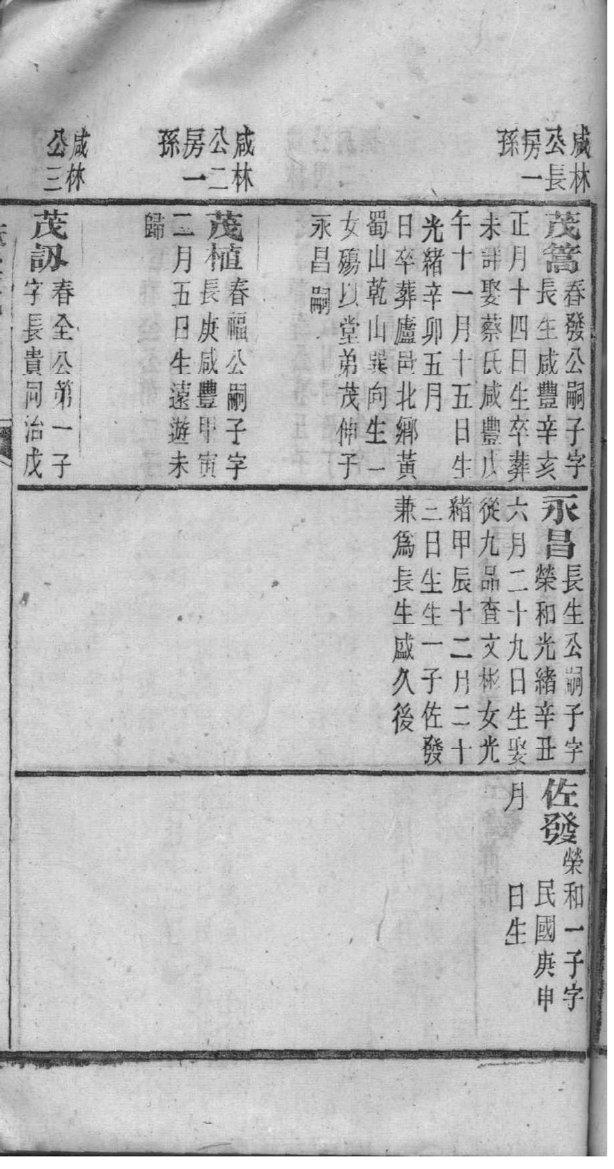 咸林
公長
房一
孫
茂篙春發公嗣子字
長生咸豐辛亥
正月十四日生卒葬
未詳娶蔡氏咸豐戊
午十一月十五日生
光緒辛卯五月
日卒葬廬邑北鄉黃
蜀山乾山巽向生一
女殤以堂弟茂伸子
永昌嗣
咸林
公二
房一
孫
茂植春福公嗣子字
長庚咸豐甲寅
二月五日生遠遊未
歸
咸林
公三
茂訒春全公第一子
字長貴同治戊
永昌長生公嗣子字
榮和光緒辛丑
六月二十九日生娶
從九品查文彬女光
緒甲辰十二月二十
三日生生一子佐發
兼為長生盛久後
佐發榮和一子字
民國庚申
月 日生